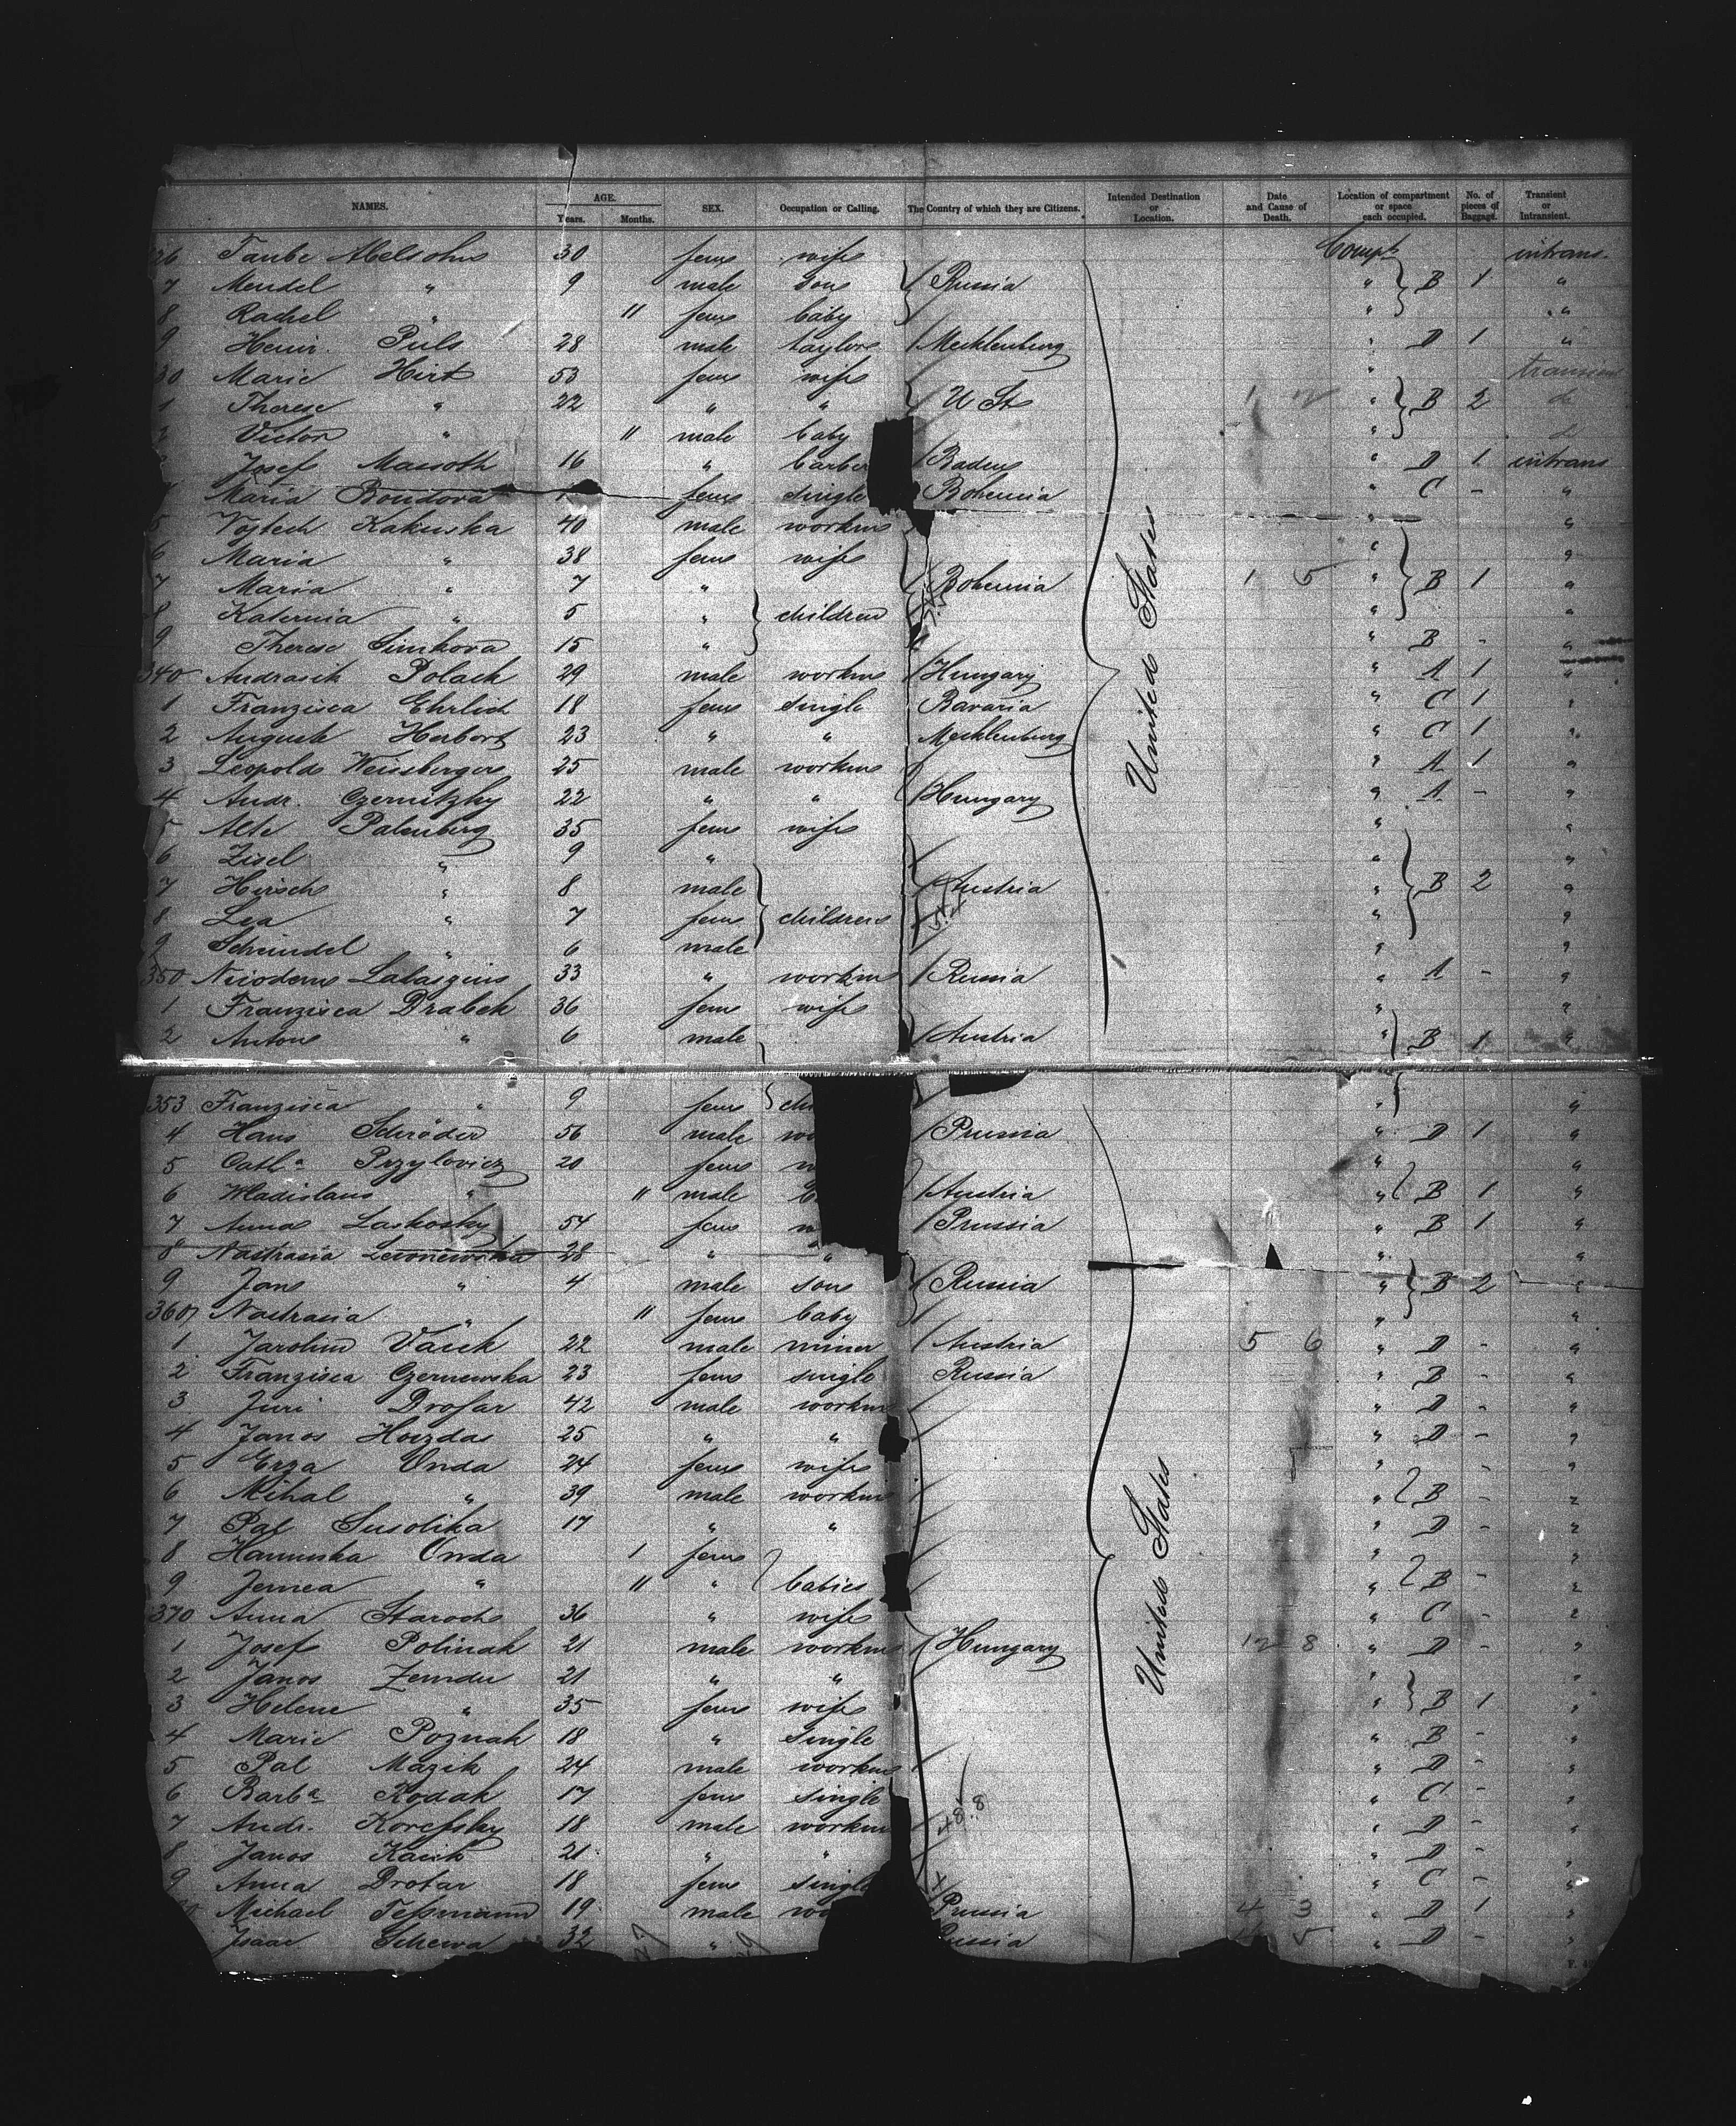 NAMES. AGE. Years. Months. SEX. Occupation or Calling. The Country of which they are Citizens. Intended Destination or Location. Date and Cause of Death. Location of compartment or space each occupied. No. of pieces of Baggage. Transient or Intransient.
26 Taube Abelsohn 30 fem wife Compt intrans.
7 Mendel " 9 male son Russia " B 1 "
8 Rachel " 11 fem baby " "
9 Heinr. Puls 28 male taylor Mecklenburg " D 1 "
30 Marie Hirt 53 fem wife "
1 Therese " 22 " " U St " B 2
2 Victor " 11 male baby "
Josef Massoth 16 " barber Baden " D 1 intrans
Maria Bondova fem single Bohemia " C - "
5 Vojtech Kakuska 40 male workm "
6 Maria " 38 fem wife " "
7 Maria " 7 " Bohemia 1 5 " B 1 "
8 Katernia " 5 " children " "
9 Therese Simkova 15 " " B - "
340 Andrasch Polack 29 male workm Hungary " A 1 "
1 Franzisca Ehrlich 18 fem single Bavaria " C 1 "
2 Auguste Herbort 23 " " Mecklenburg " C 1 "
3 Leopold Weissberger 25 male workm " A 1 "
4 Andr. Czernitzky 22 " " Hungary " A - "
5 Alte Palenberg 35 fem wife " "
6 Zisel " 9 " " "
7 Hirsch " 8 male Austria " B 2 "
8 Lea " 7 fem children " "
9 Scheindel " 6 male " "
350 33 " workm Russia " A - "
1 Franzisca Drabek 36 fem wife " "
2 Anton " 6 male Austria " B 1 "
United States
353 Franzisca " 9 fem " "
4 Hans Schröder 56 male Prussia " D 1 "
5 Cath.a Przylovicz 20 fem " "
6 Wladislaus " 11 male Austria " B 1 "
7 Anna Laskosky 54 fem Prussia " B 1 "
8 Nastrasia Lewonewska 28 " " " "
9 Jan " 4 male son Russia " B 2 "
360 Nastrasia " 11 fem baby " "
1 Jarolim Vacek 22 male miner Austria 5 6 " D - "
2 Franzisca Czernewska 23 fem single Russia " B - "
3 Juri Drofar 42 male workm " D - "
4 Janos Hoizdas 25 " " " D - "
5 Erza Onda 24 fem wife " - "
6 Mihal " 39 male workm " B - "
7 Pal Susolika 17 " " " D - "
8 Hanuska Onda 1 fem " "
9 Jernea " 11 " babies " B - "
370 Anna Staroch 36 " wife " C - "
1 Josef Polinak 21 male workm Hungary 12 8 " D - "
2 Janos Zemdu 21 " " " "
3 Helene " 35 fem wife " B 1 "
4 Marie Poznak 18 " single " B - "
5 Pal Mazik 24 male workm " D - "
6 Barb.a Kodak 17 fem single " C - "
7 Andr. Korefsky 18 male workm " D - "
8 Janos Kacik 21 " " " D - "
9 Anna Drotar 18 fem single " C - "
Michael Tessmann 19 male Prussia 4 3 " D 1 "
Isaac Schewa 32 " 5 " D - "
United States